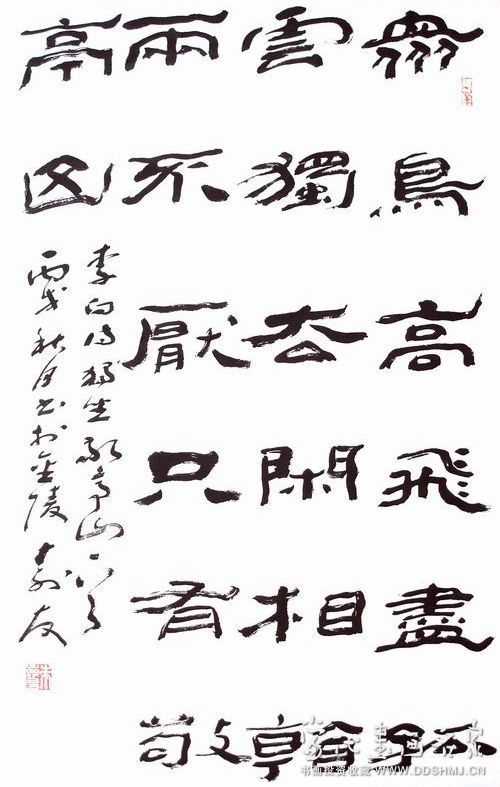 眾鳥高飛盡孤
雲獨去閑相看
兩不厭只有敬
亭山
李白诗獨坐敬亭山一首
丙戌秋月书於金陵
书画投资收藏 WWW.DDSHMJ.CN